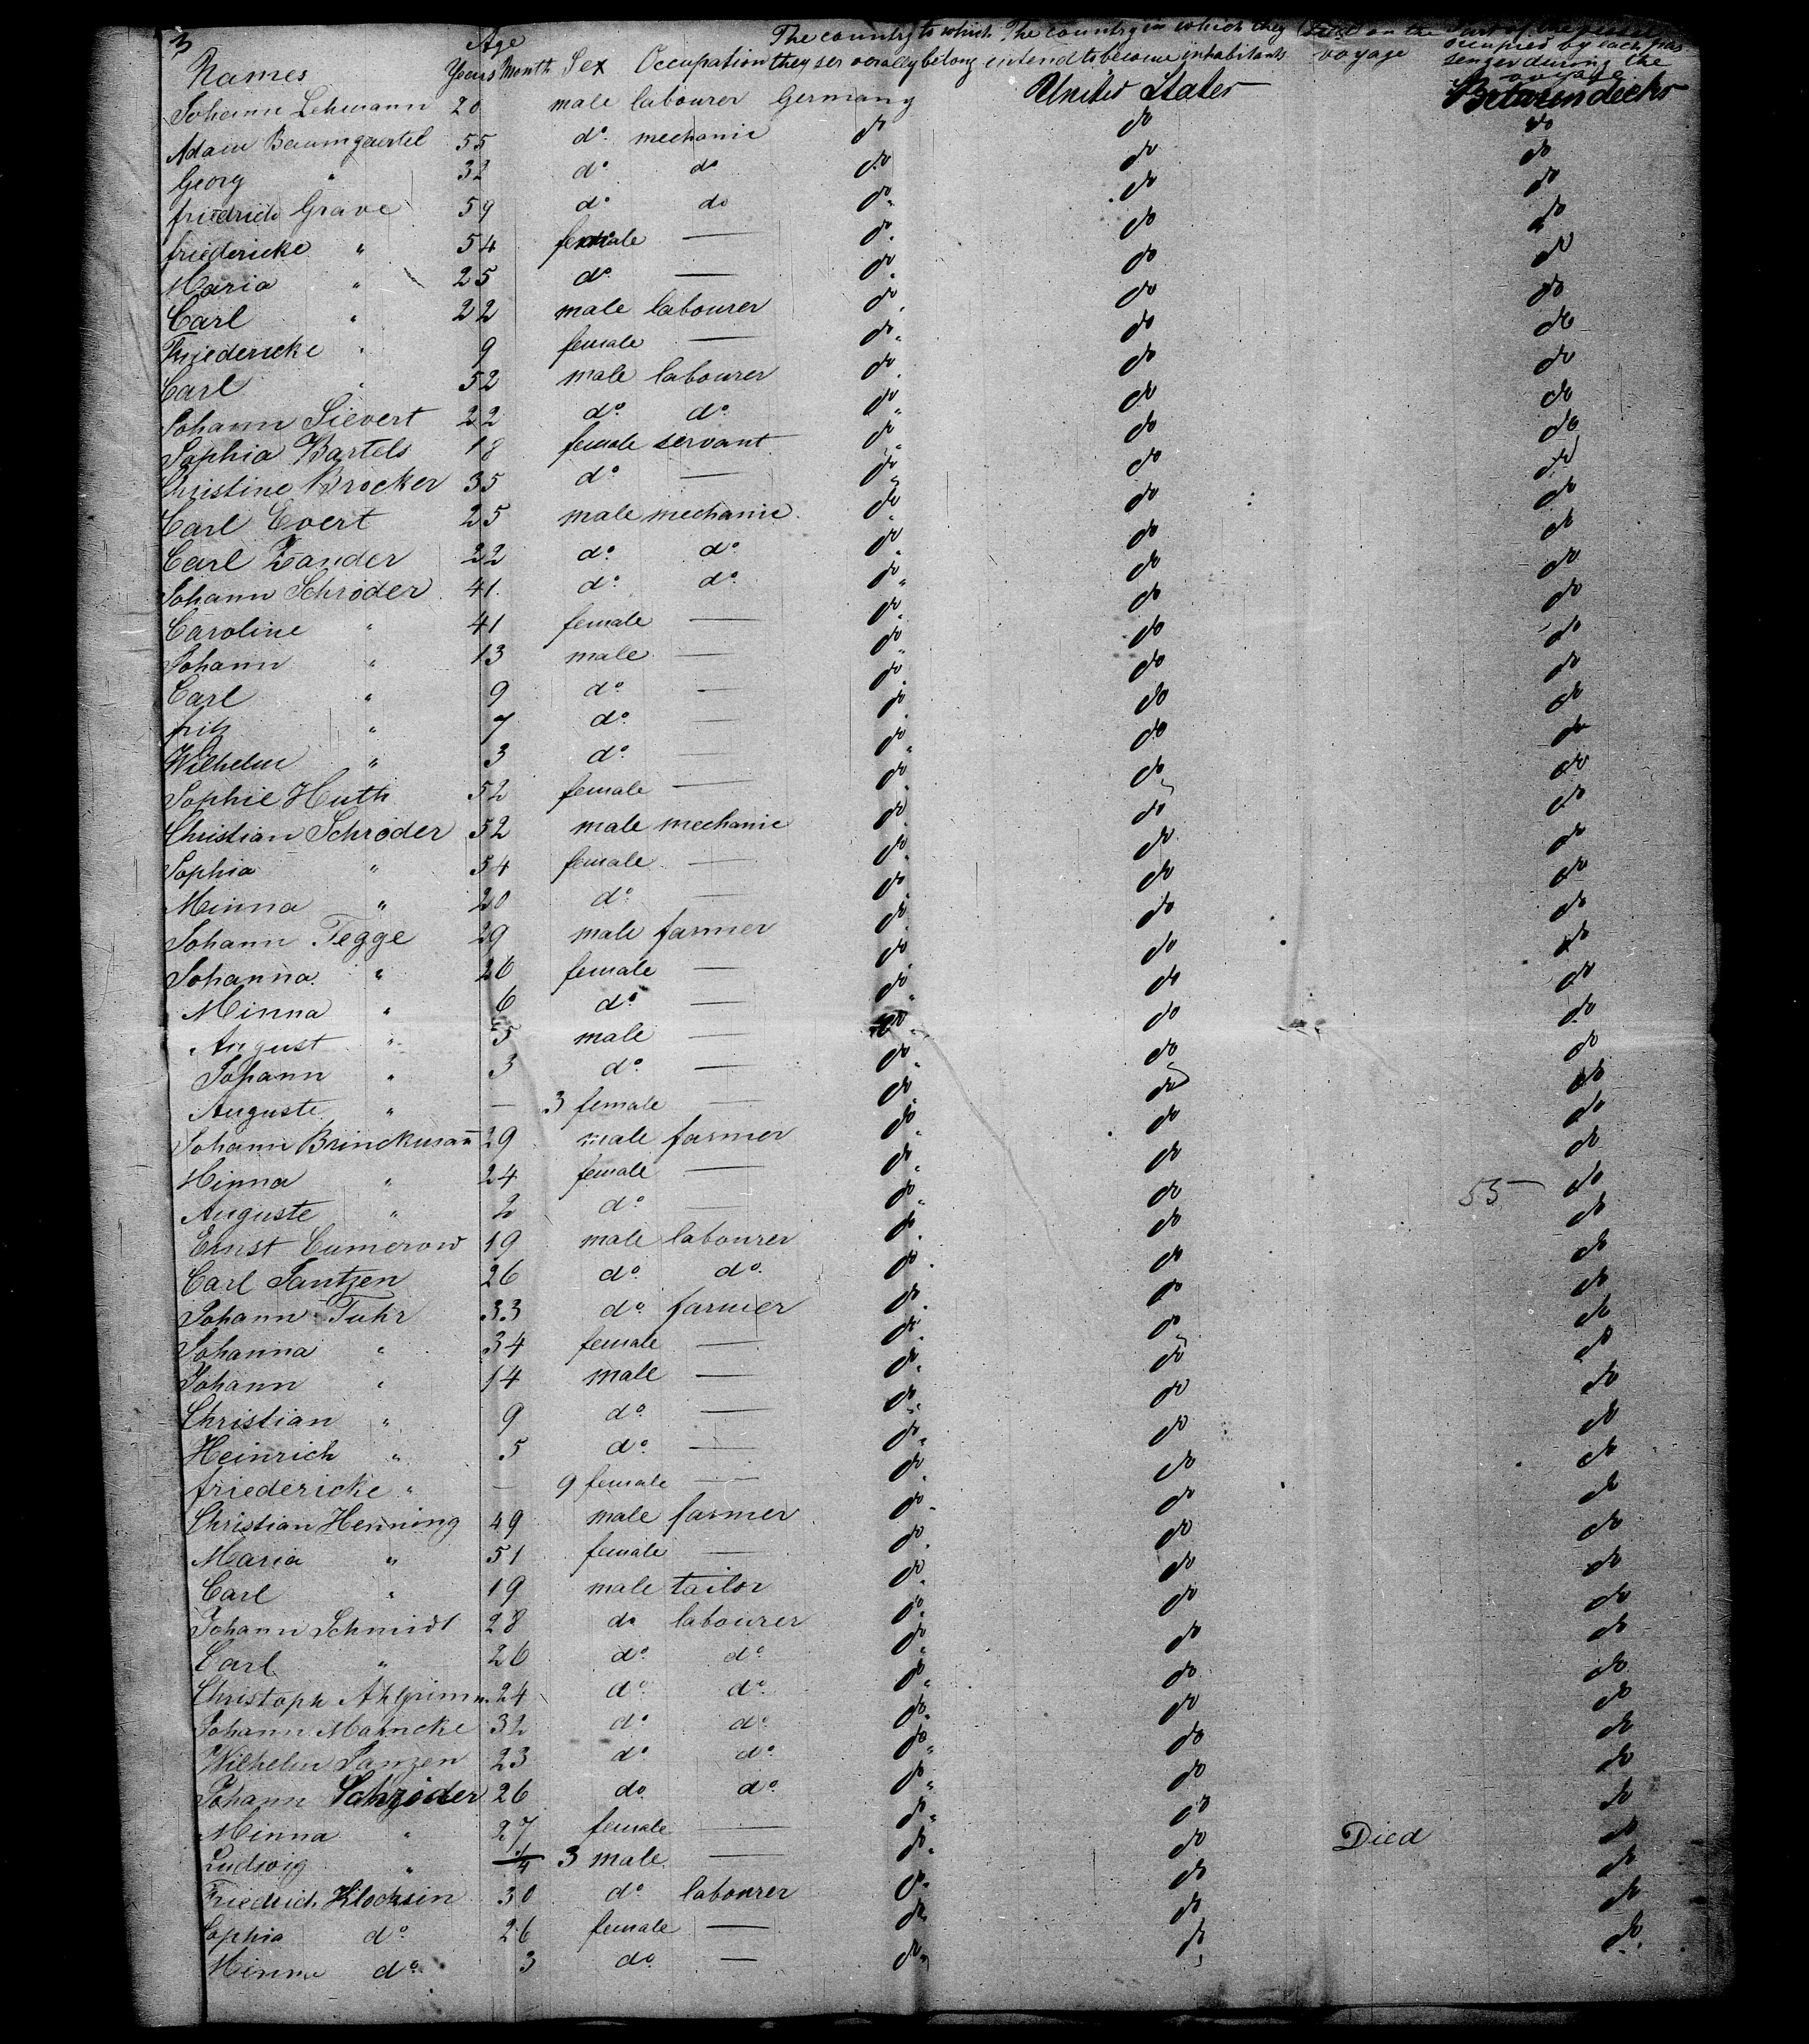 3
Age The country to which The country in which they Died on the Part of the vessel
Names Years Month Sex Occupation they severally belong intend to become inhabitants voyage occupied by each pas
senger during the
voyage
Johann Lehmann 20 male labourer Germany United States Between decks
Adam Baumgaertel 55 do. mechanic do do do
Georg " 32 do. do do do do
friedrich Grave 59 do. do do do do
friedericke " 54 female — do do do
Maria " 25 do. — do do do
Carl " 22 male labourer do do do
Friedericke " 9 female — do do do
Carl " 52 male labourer do do do
Johann Sievert 22 do. do. do do do
Sophia Bartels 18 female servant do do do
Christine Brocker 35 do. — do do do
Carl Evert 25 male mechanic do do do
Carl Zander 22 do. do. do do do
Johann Schroder 41. do. do. do do do
Caroline " 41 female — do do do
Johann " 13 male — do do do
Carl " 9 do. — do do do
fritz " 7 do. — do do do
Wilhelm " 3 do. — do do do
Sophie Huth 52 female — do do do
Christian Schröder 52 male mechanic do do do
Sophia " 54 female — do do do
Minna " 20 do. — do do do
Johann Tegge 29 male farmer do do do
Johanna " 26 female — do do do
Minna " 6 do. — do do do
August " 5 male — do do do
Johann " 3 do. — do do do
Auguste " — 3 female — do do do
Johann Brinckmann 29 male farmer do do do
Minna " 24 female — do do do
Auguste " 2 do. — do do 55 — do
Ernst Cumerow 19 male labourer do do do
Carl Jantzen 26 do. do. do do do
Johann Fuhr 33 do. farmer do do do
Johanna " 34 female — do do do
Johann " 14 male — do do do
Christian " 9 do. — do do do
Heinrich " 5 do. — do do do
friedericke " — 9 female — do do do
Christian Henning 49 male farmer do do do
Maria " 51 female — do do do
Carl " 19 male tailor do do do
Johann Schmidt 28 do labourer do do do
Carl " 26 do. do. do do do
Christoph Ahlgrimm 24 do. do. do do do
Johann Mahncke 32 do. do. do do do
Wilhelm Janzen 23 do. do. do do do
Johann Schröder 26 do. do. do do do
Minna " 27 female — do do do
Ludwig " 1/4 3 male — do do Died do
Friedrich Klocksin 30 do. labourer do do do
Sophia do. 26 female — do do do
Minna do. 3 do. — do do do